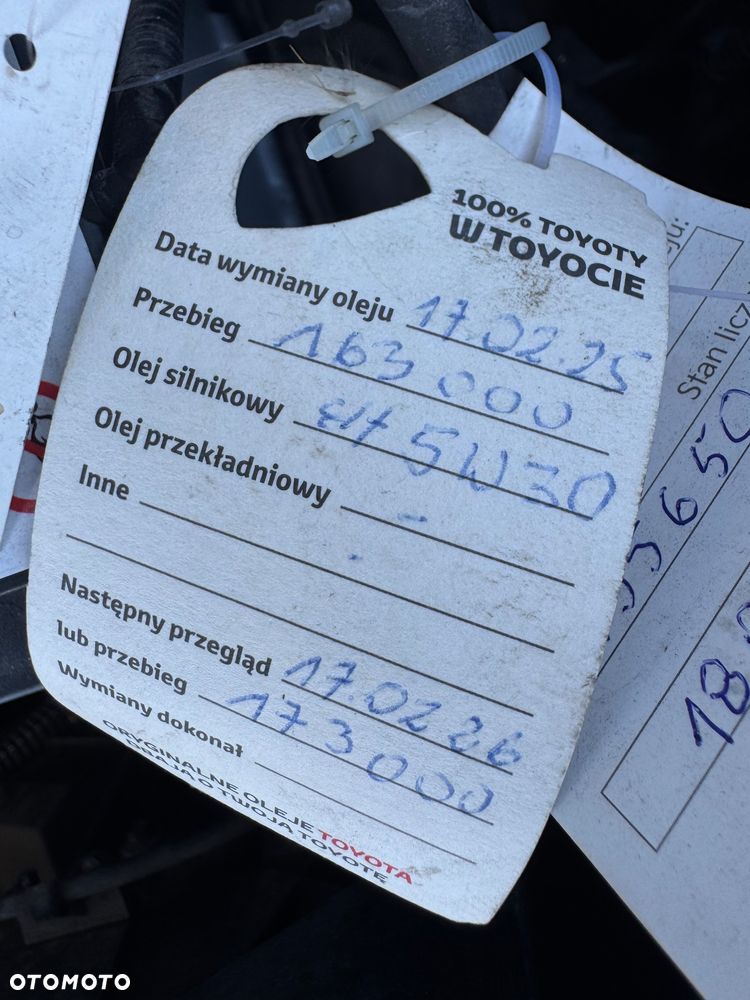 100% TOYOTY
W TOYOCIE
Data wymiany oleju 17.02.25
Przebieg 163 000
Olej silnikowy 5W30
Olej przekładniowy -
Inne
Następny przegląd 17.02 26
lub przebieg 173 000
Wymiany dokonał
ORYGINALNE OLEJE TOYOTA
DBAJĄ O TWOJĄ TOYOTĘ
Stan licz
5650
18.
OTOMOTO